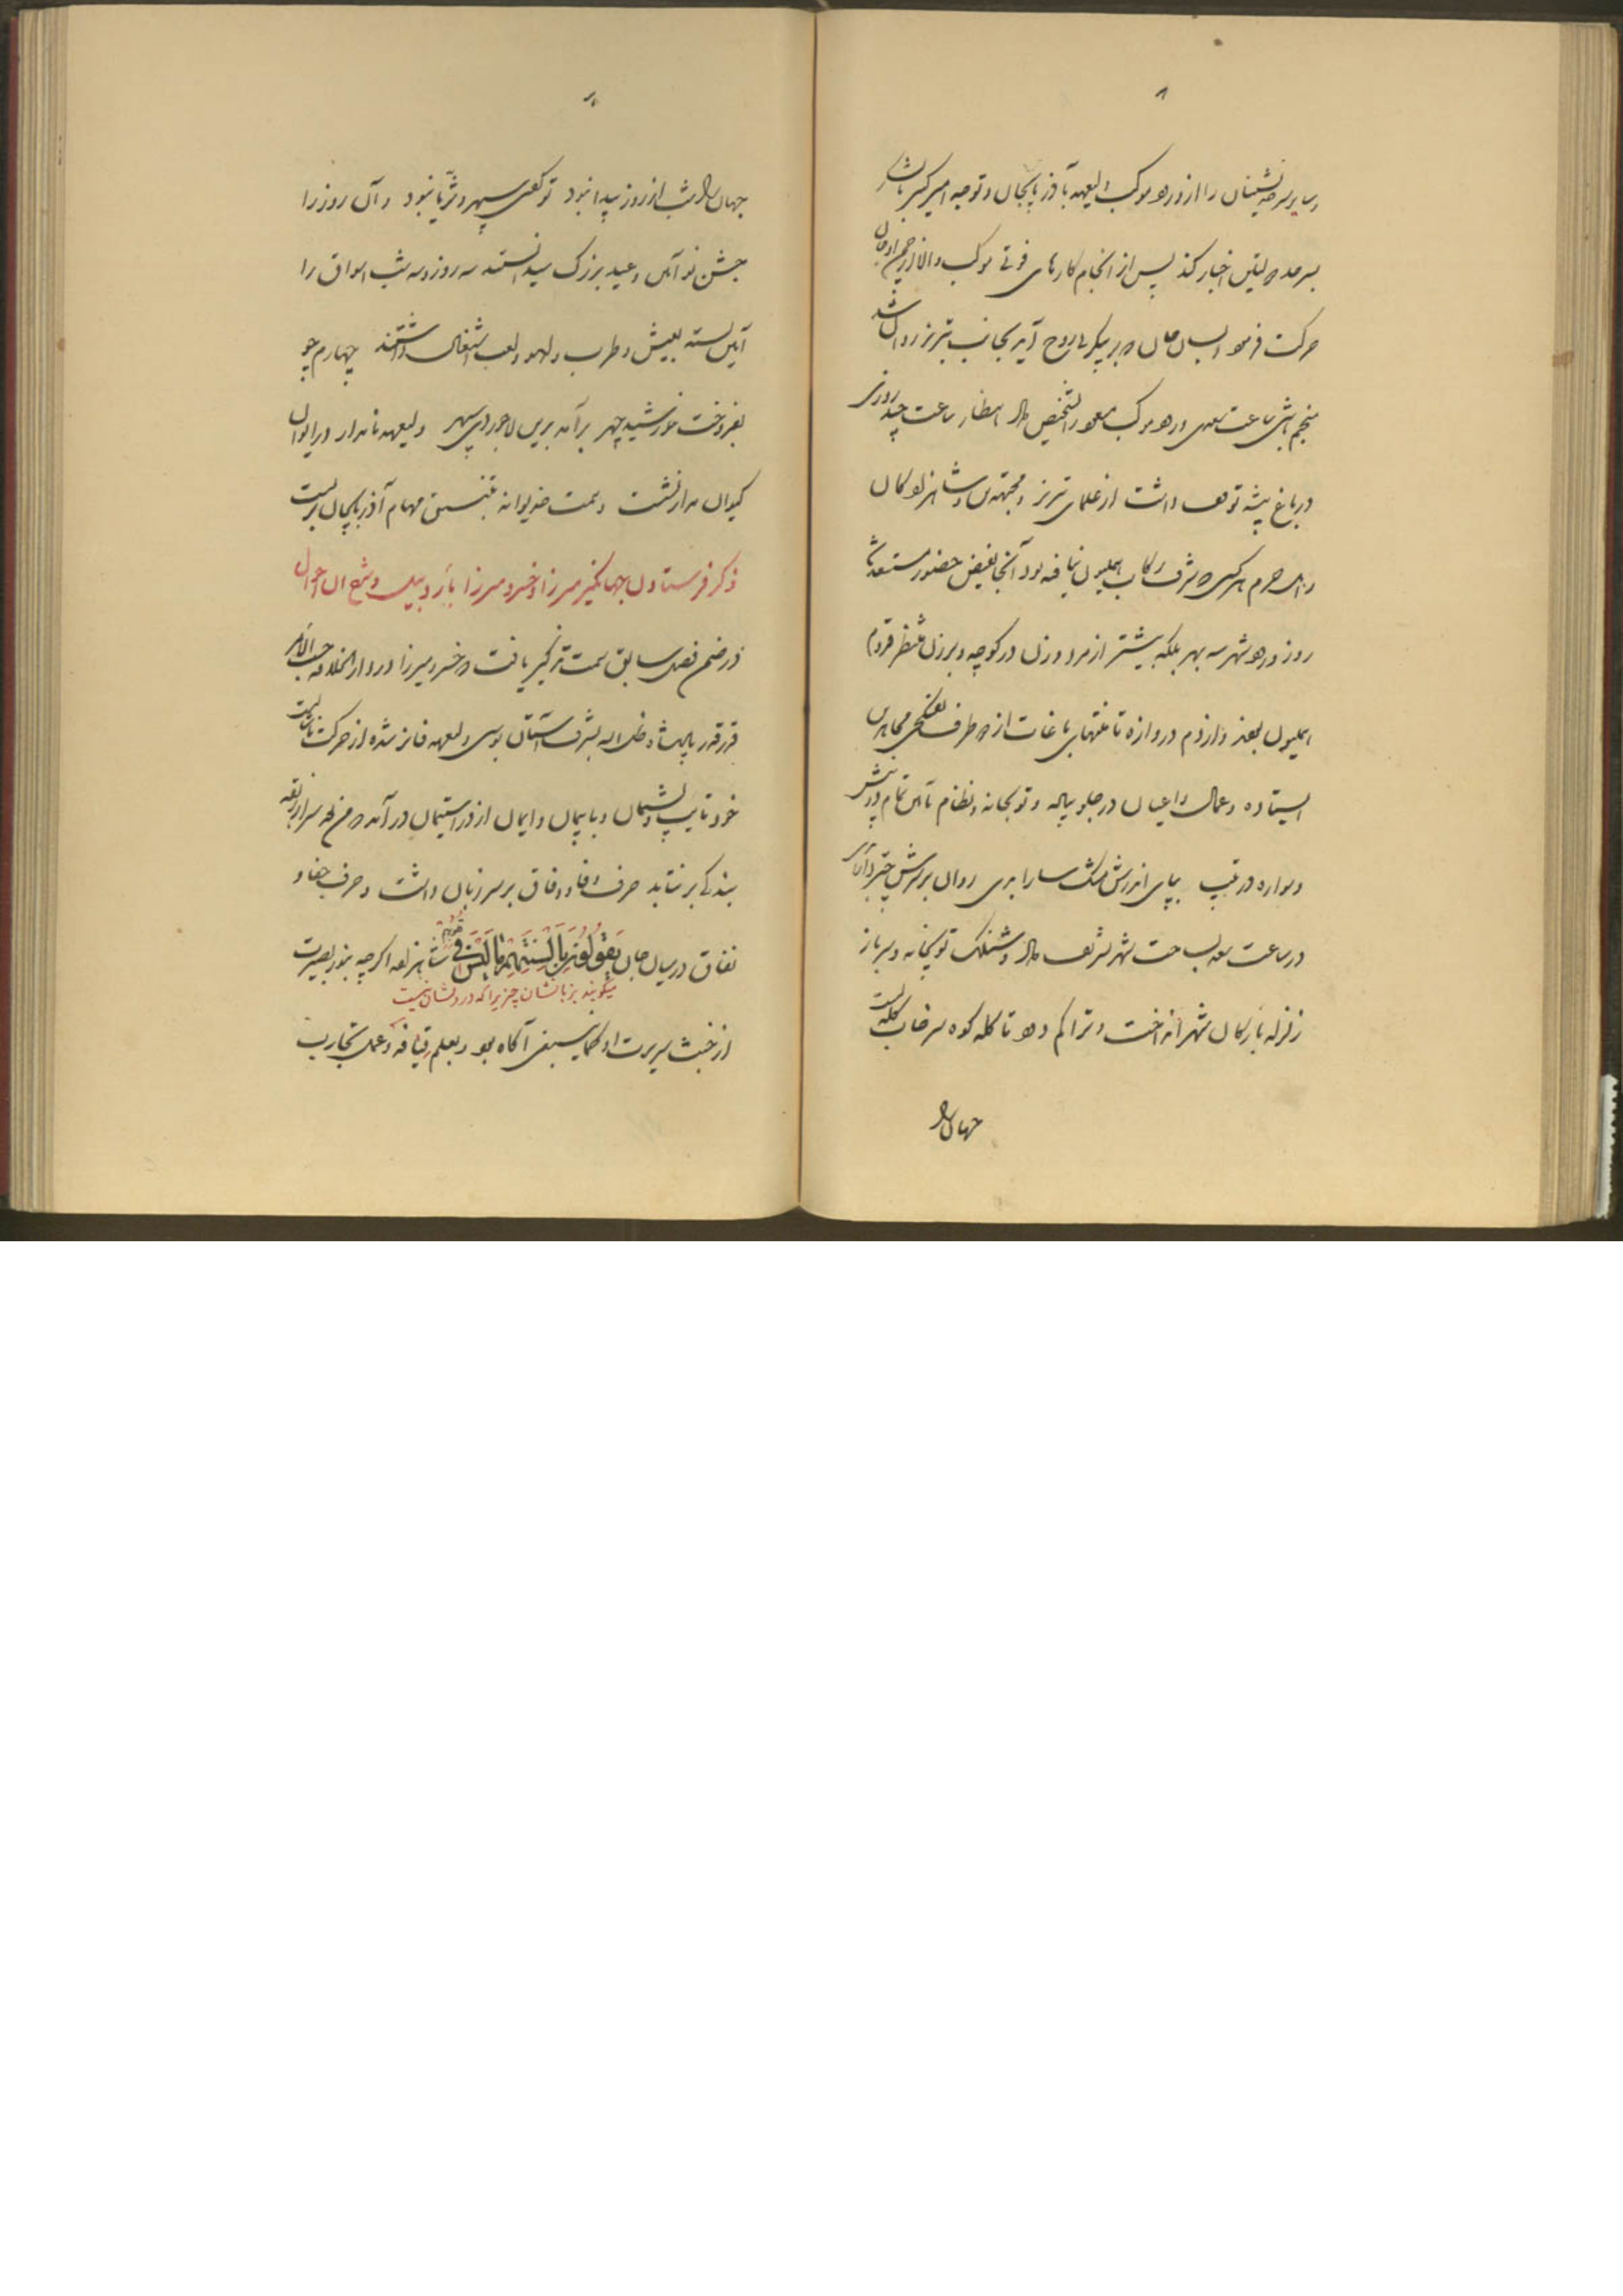 ۸
و سایر سرحد نشینان را از ورود موکب ولیعهد بآذربایجان و توجه امیر کبیر
اخبار کند پس از انجام کارهای فوتی موکب والا از
حرکت فرمود بسان جان که بر پیکر بی روح آید بجانب تبریز روان شد
منجم باشی ساعت ورود موکب مسعود را تشخیص داد انتظار ساعت چند روزی
در باغ پیشه توقف داشت از علمای تبریز و مجتهدین و شاهزادگان
و اهل حرم هر کس که شرف رکاب همیون نیافته بود آنجا بفیض حضور مستعد شد
روز ورود شهر سه بهر بلکه بیشتر از مرد و زن در کوچه و برزن منتظر قدوم
همیون بودند و از دم دروازه تا منتهای باغات از دو طرف تفنگچی مجاهدین
ایستاده و عمال و اعیان در جلو پیاده و توپخانه و نظام با این تمام در پیش
و سواره در عقب بپای اندرش مشک سارا بری روان بر سرش چتر
در ساعت سعد بساحت شهر تشریف داد و شنلک توپخانه و سرباز
زلزله بارکان شهر انداخت و تراکم دود تا کله کوه سرخاب کله بست
جهان را
جهان را شب از روز پیدا نبود تو گفتی سپهر و ثریا نبود و آن روز را
جشن نو آئین و عید بزرگ میدانستند سه روز و سه شب اسواق را
آئین بسته بعیش و طرب و لهو و لعب اشتغال داشتند چهارم چو
بفروخت خورشید چهر برآمد برین لاجوردی سپهر ولیعهد نامدار در ایوان
کیوان مدار نشست و همت خدیوانه بتنسیق مهام آذربایجان بربست
ذکر فرستادن جهانگیر میرزا و خسرو میرزا باردبیل و شرح آن احوال
در ضمن فصل سابق سمت تذکیر یافت که خسرو میرزا در دار الخلافه حسب الامر
قدر قدر پادشاه ظل اله بشرف آستان بوسی ولیعهد فائز شده از حرکت ناشایست
خود تایب و پشیمان و با پیمان و ایمان از در استیمان درآمد که من بعد سر از ربقه
بندگی برنتابد حرف وفا و وفاق بر سر زبان داشت و حرف جفا و
نفاق در میان جان یَقُولُونَ بِاَلْسِنَتِهِمْ مٰا لَیْسَ فی قُلُوبِهِمْ شاهزاده اگرچه بنور بصیرت
میگویند بزبانشان چیزیرا که در دلشان نیست
از خبث سریرت او کما ینبغی آگاه بود و بعلم قیافه و عمل تجارب